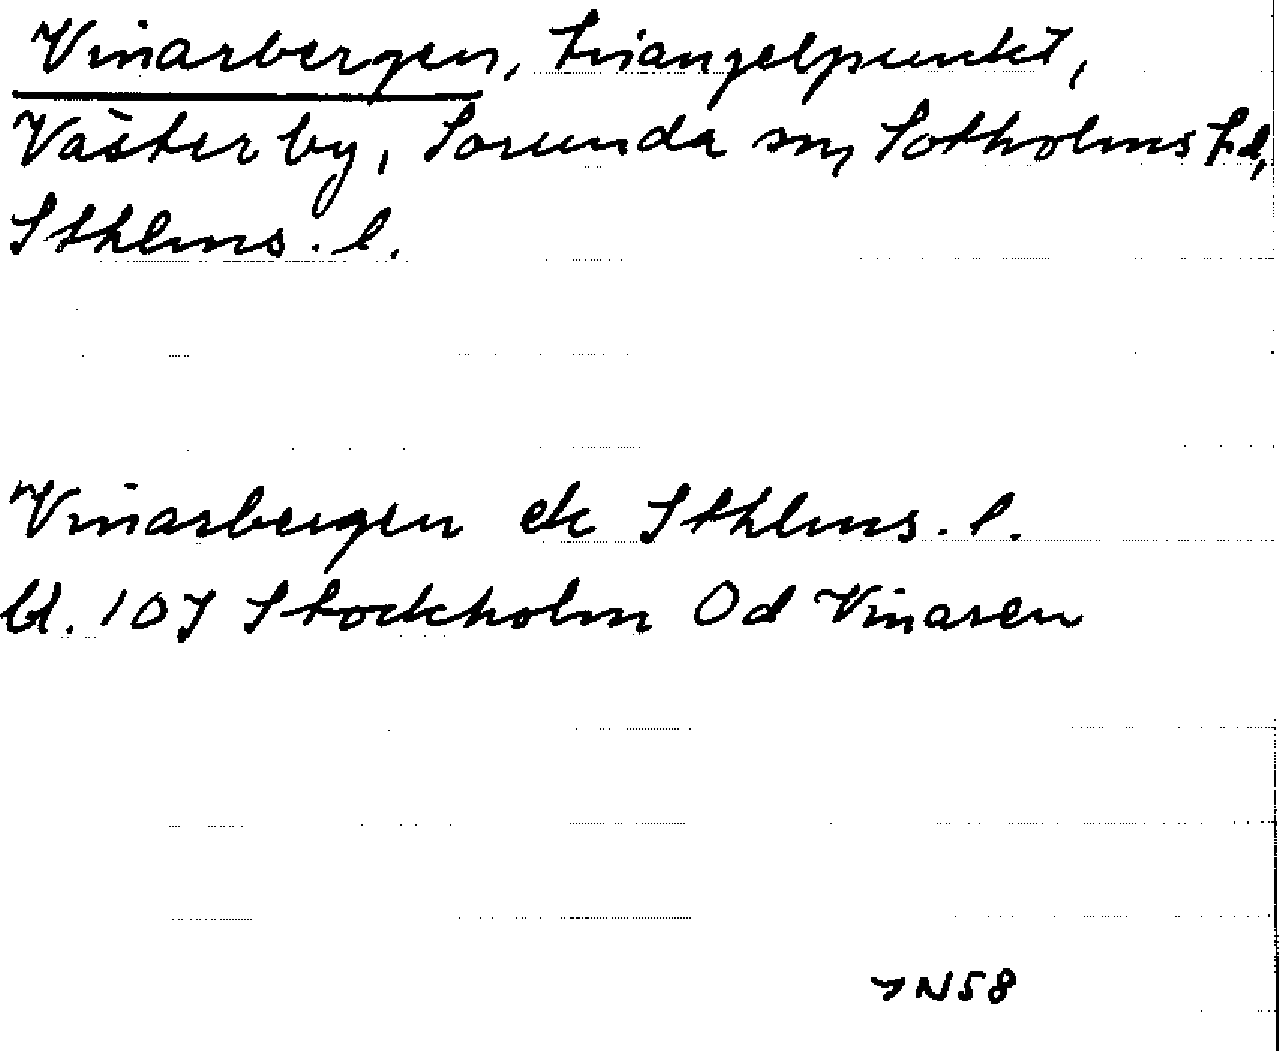 Vinarbergen, triangelpunkt,
Västerby, Sorunda sn, Sotholms hd,
Sthlms. l.
Vinarbergen ek Sthlms. l.
bl. 10J Stockholm Od Vinaren
N58